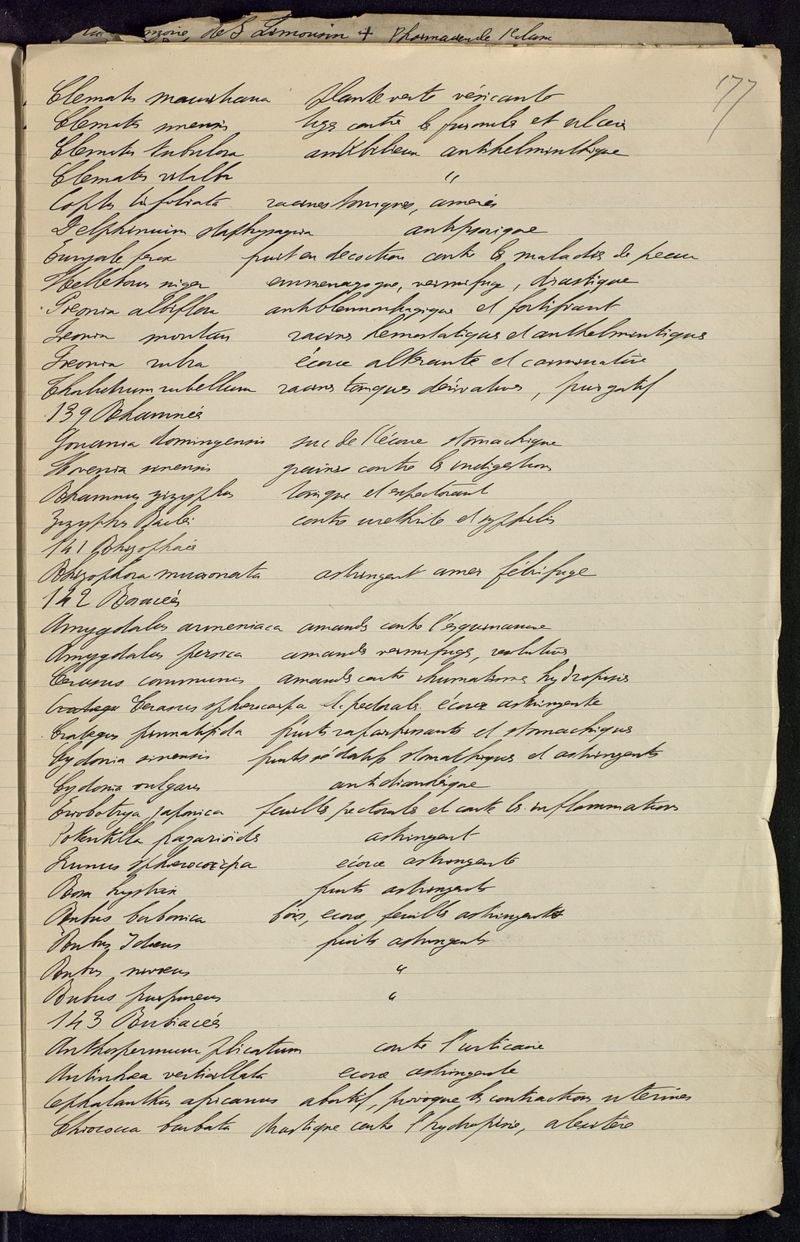 de S Limousin + Pharmacien de 1e classe
177
Clematis mauritiana plante verte vésicante
Clematis sinensis tige contre les furoncles et ulcères
Clematis tubulosa antibilieux antihelminthique
Clematis vitalba "
Coptis trifoliata racines toniques, amères
Delphinium staphysagria antipsorique
Euryale ferox fruit en decoction contre les maladies de peau
Helleborus niger emmenagogue, vermifuge, drastique
Pæonia albiflora antiblennorrhagique et fortifiant
Pæonia moutan racines hemostatiques et anthelmintiques
Pæonia rubra écorce altérante et carminative
Thalictrum rubellum racines toniques dérivatives, purgatif
139 Rhamnées
Gouania domingensis suc de l'écorce stomachique
Hovenia sinensis graines contre les indigestions
Rhamnus zizyphus tonique et expectorant
Zizyphus Baclei contre urethrite et syphilis
141 Rhizophorées
Rhizophora mucronata astringent amer fébrifuge
142 Rosacées
Amygdalus armeniaca amandes contre l'esquinancie
Amygdalus persica amandes vermifuges, resolutives
Cerasus communis amandes contre rhumatisme hydropisie
Crataegu Cerasus spherocarpa fl. pectorales écorce astringente
Crataegus pinnatifida fruits rafraichissants et stomachiques
Cydonia sinensis fruits sédatifs stomachiques et astringents
Cydonia vulgaris antidiarrhéique
Eriobotrya japonica feuilles pectorales et contre les inflammations
Potentilla fragarioïdes astringent
Prunus spherocarpa écorce astringente
Rosa hystrix fruits astringents
Rubus borbonica bois, ecorce, feuilles astringents
Rubus Idæus fruits astringents
Rubus niveus "
Rubus purpureus "
143 Rubiacées
Anthospermum plicatum contre l'urticaire
Antirhea verticillata ecorce astringente
Cephalanthus africanus abortif, provoque les contractions uterines
Chiococca barbata drastique contre l'hydropisie, alexitere